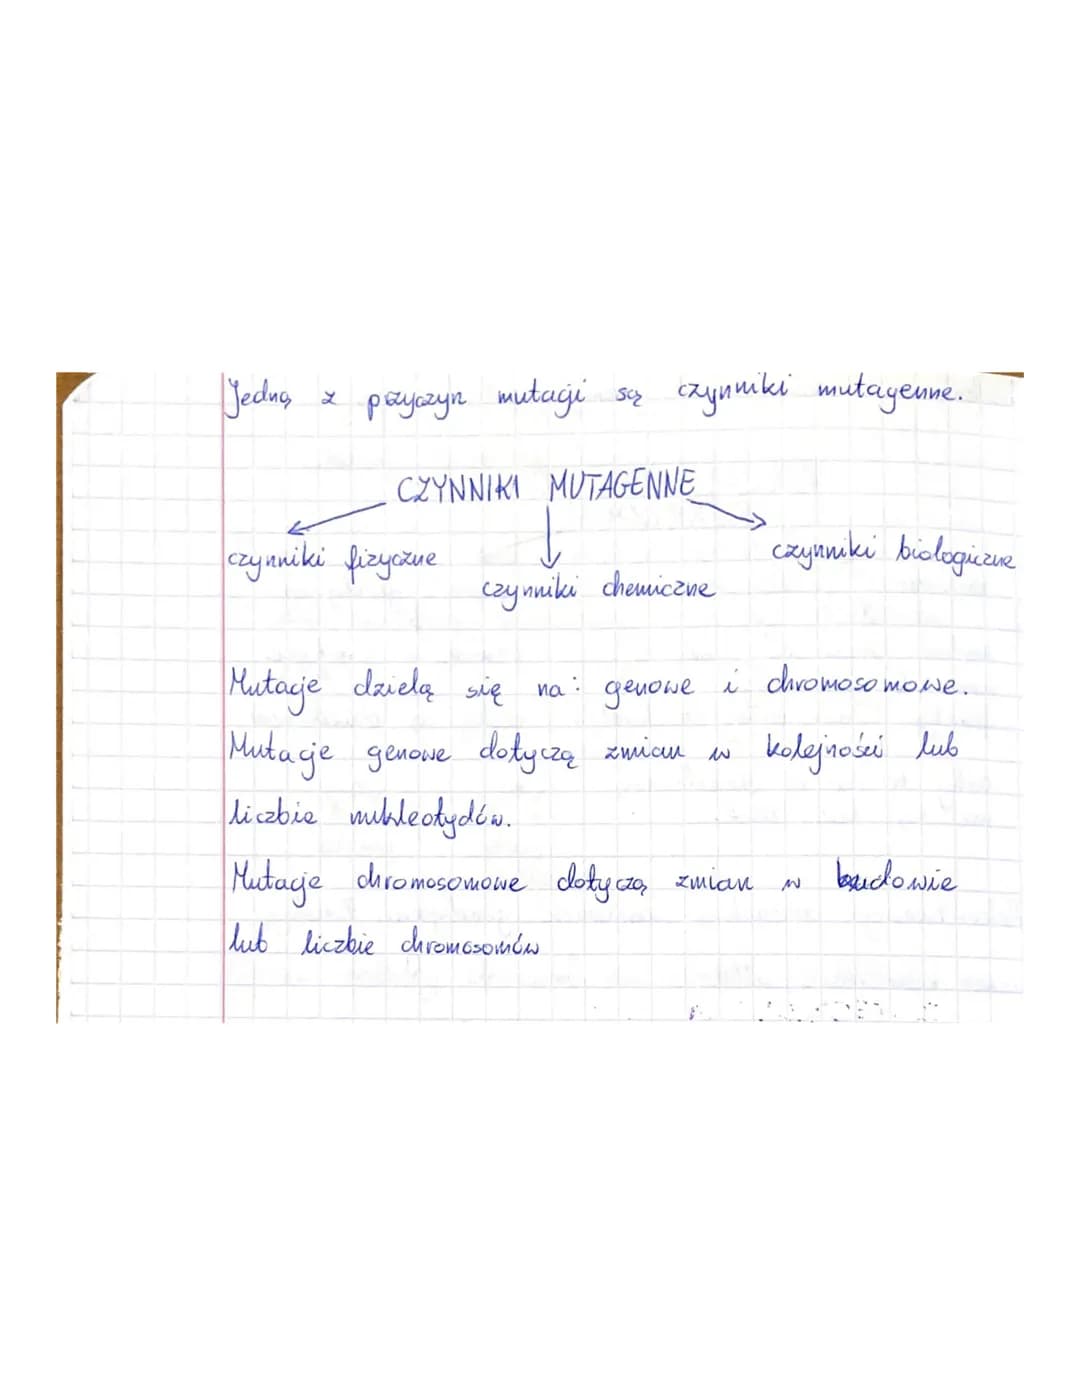 Jedną z przyczyn mutacji są czynniki mutagenne.
CZYNNIKI MUTAGENNE
czynniki fizyczne
czynniki chemiczne
czynniki biologiczne
Mutacje dzielą się na: genowe i chromosomowe.
Mutacje genowe dotyczą zmian w kolejności lub
liczbie nukleotydów.
Mutacje chromosomowe dotyczą zmian w budowie
lub liczbie chromosomów